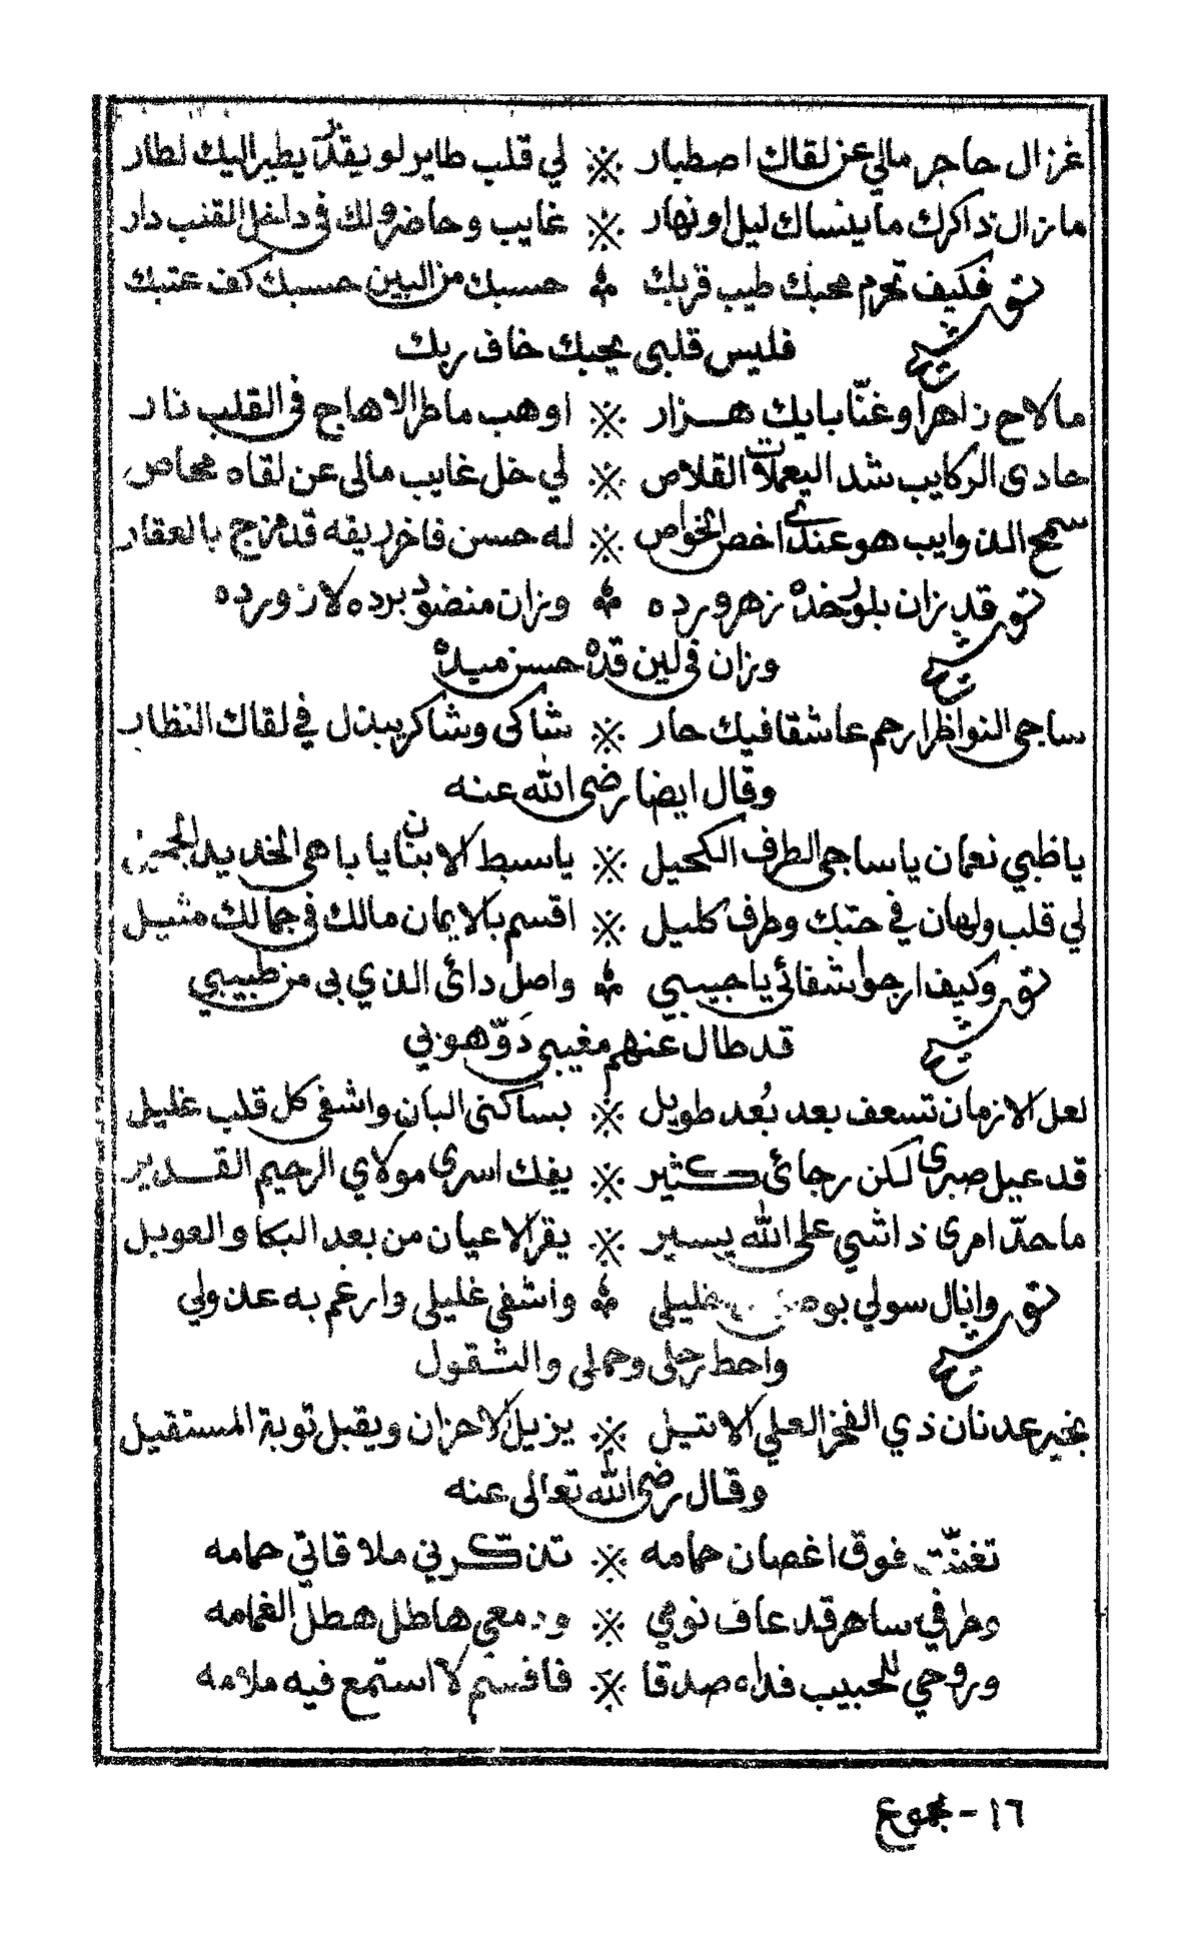 غزال حاجر مالي عن لقاك اصطبار ※ لي قلب طاير لو يقدر يطير اليك لطار
ما زال ذاكرك ما ينساك ليل او نهار ※ غايب وحاضر ولك في داخل القلب دار
توشيح فكيف تحرم محبك طيب قربك ⁂ حسبك من البين حسبك كف عتبك
فليس قلبي يحبك خاف ربك
ما لاح زاهر او غنّا بايك هزار ※ اوهب ماطر الا هاج في القلب نار
حادى الركايب شد اليعملات القلاص ※ لي خل غايب مالى عن لقاه محاص
سمح الذوايب هو عندي اخص الخواص ※ له حسن فاخر ريقه قد مزج بالعقار
توشيح قد زان بلور خده زهر ورده ⁂ وزان منضود برده لازورده
وزان في لين قده حسن ميده
ساجى النواظر ارحم عاشقا فيك حار ※ شاكى وشاكر يبذل في لقاك النظار
وقال ايضا رضي الله عنه
يا ظبي نعمان يا ساجى الطرف الكحيل ※ يا سبط الابنان يا باهى الخديد الجميل
لي قلب ولهان في حبّك وطرف كليل ※ اقسم بالايمان مالك في جمالك مثيل
توشيح وكيف ارجو اشفائي يا حبيبي ⁂ واصل دائ الذي بى من طبيبي
قد طال عنهم مغيبى ذوّهوبي
لعل الازمان تسعف بعد بُعد طويل ※ بساكنى البان واشفى كل قلب غليل
قد عيل صبرى لكن رجائ كثير ※ يفك اسرى مولاي الرحيم القدير
ما حدّ امرى ذا شي على الله يسير ※ يقر الاعيان من بعد البكا والعويل
توشيح وانال سولي خليلى ⁂ واشفى غليلى وارغم به عذولي
واحط رحلى وحملى والشقول
بخير عدنان ذي الفخر العلي الاثيل ※ يزيل الاحزان ويقبل توبة المستقيل
وقال رضي الله تعالى عنه
تغنّت فوق اغصان حمامه ※ تذكرني ملاقاتي حمامه
وطرفي ساهر قد عاف نومي ※ ودمعي هاطل هطل الغمامه
وروحي للحبيب فداء صدقا ※ فاقسم لا استمع فيه ملامه
١٦ - مجموع